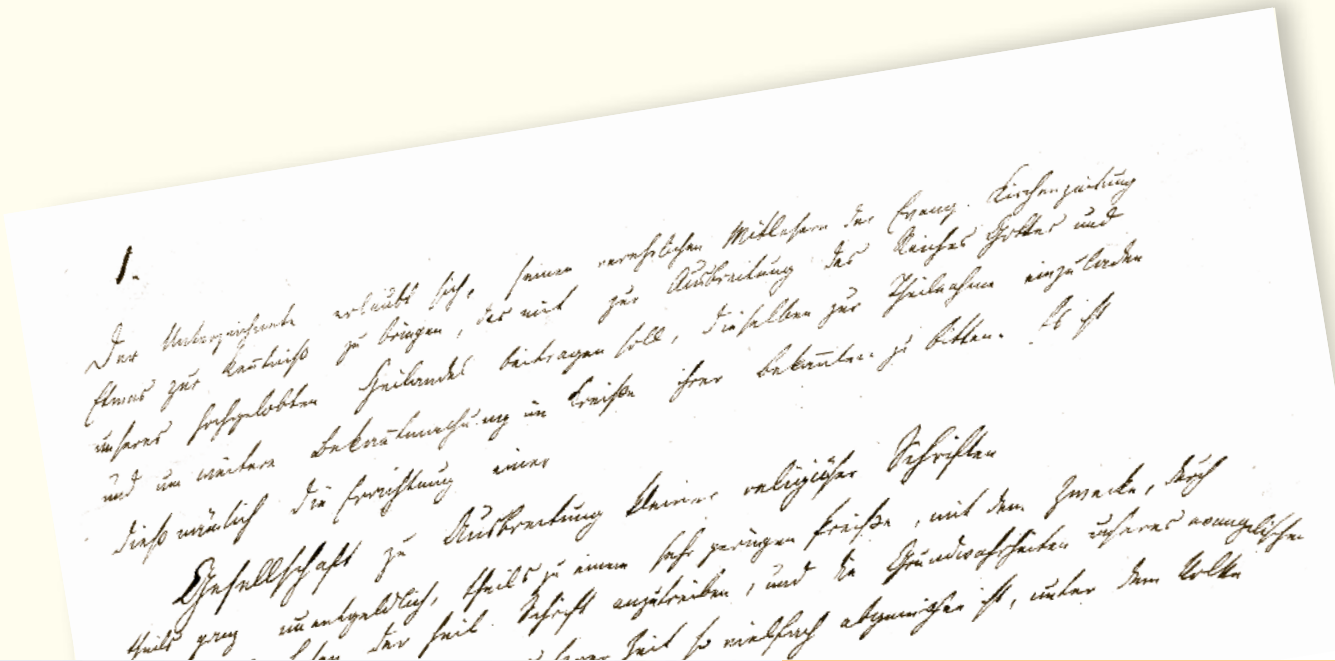 1.
Der Unterzeichnete erlaubt sich, seinen verehrlichen Mitlesern der Evang. Kirchenzeitung
Etwas zur Kentniß zu bringen, das mit zur Ausbreitung des Reiches Gottes und
unseres hochgelobten Heilandes beitragen soll, dieselben zur Theilnahme einzuladen
und um weitere Bekantmachung im Kreiße ihrer Bekanten zu bitten. Es ist
dieß nämlich die Errichtung einer
Gesellschaft zu Ausbreitung kleiner religiöser Schriften
theils ganz unentgeldlich, theils zu einem sehr geringen Preiße, mit dem Zwecke, durch
der heil. Schrift anzutreiben, und die Grundwahrheiten unseres evangelischen
Zeit so vielfach abgewichen ist, unter dem Volke